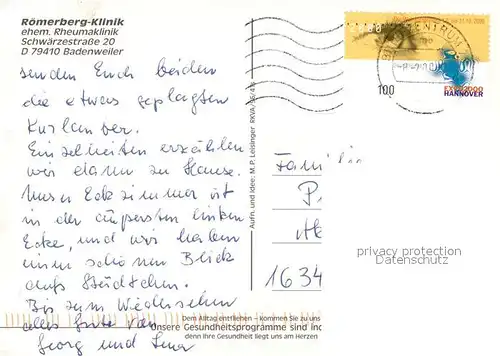 Römerberg-Klinik
ehem. Rheumaklinik
Schwärzestraße 20
D 79410 Badenweiler
senden Euch beiden
die etwas geplagten
Kurlauber.
Einzelheiten erzählen
wir dann zu Hause.
Unser Eckzimmer ist
in der äußersten linken
Ecke, und wir haben
einen schönen Blick
aufs Städtchen.
Bis zum Wiedersehen
alles Gute von
Georg und
Aufn. und Idee: M.P. Leisinger
100
EXPO2000
HANNOVER
Familie
P
1634
privacy protection
Datenschutz
Dem Alltag entfliehen – kommen Sie zu uns
Unsere Gesundheitsprogramme sind
denn Ihre Gesundheit liegt uns am Herzen